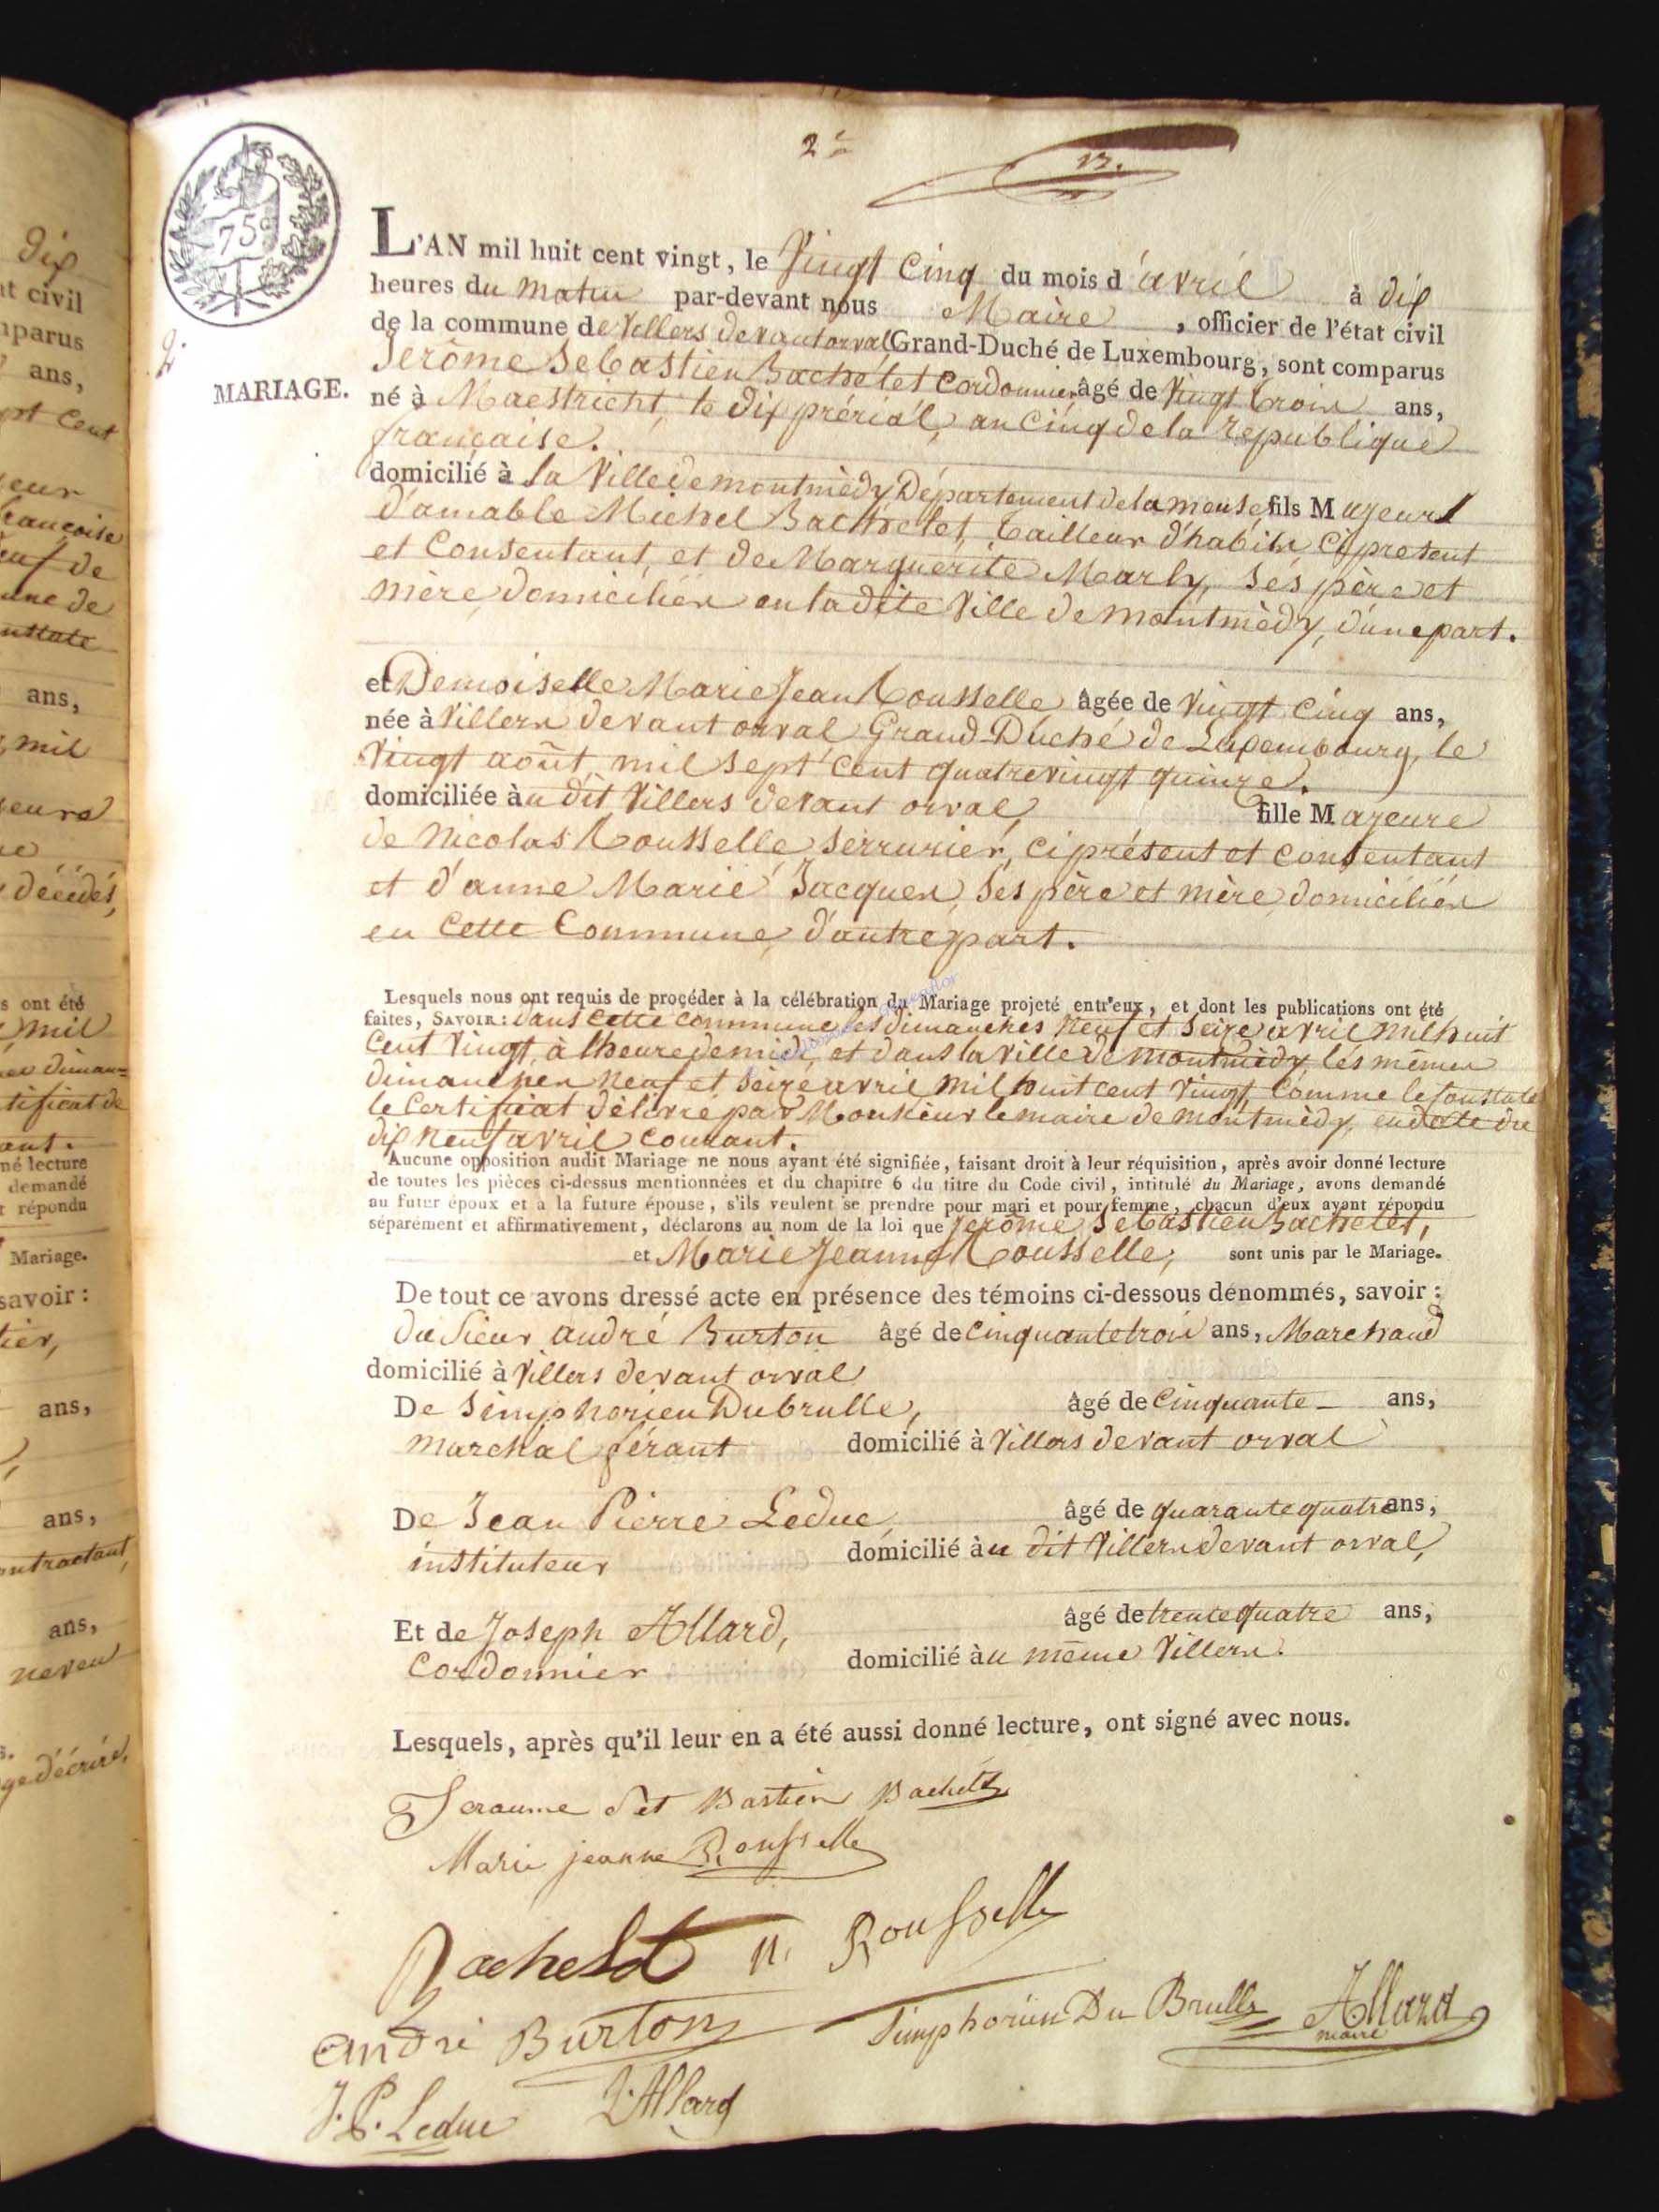 2e
13.
75c
L'AN mil huit cent vingt, le Vingt Cinq du mois d'avril à dix
heures du matin par-devant nous Maire, officier de l'état civil
de la commune de Villers devant orval Grand-Duché de Luxembourg, sont comparus
2.
MARIAGE.
Jerôme Sebastien Bachelet Cordonnier âgé de Vingt trois ans,
né à Maestricht, le dix prérial, an Cinq de la republique
française.
domicilié à la Ville de montmèdy Département de la meuse fils Majeur
d'amable Michel Bachelet, tailleur d'habits, ci present
et Consentant, et de Marguerite Marly, ses père et
mère, domiciliés en la dite Ville de montmèdy, d'une part.
et Demoiselle Marie Jean Rousselle âgée de Vingt Cinq ans,
née à Villers devant orval Grand-Duché de Luxembourg, le
Vingt août mil sept cent quatrevingt quinze.
domiciliée à u dit Villers devant orval fille Majeure
de Nicolas Rousselle serrurier, ci présent et consentant
et d'anne Marie Jacques, ses père et mère, domiciliés
en Cette Commune, d'autre part.
Lesquels nous ont requis de procéder à la célébration du Mariage projeté entr'eux, et dont les publications ont été
faites, SAVOIR: dans cette commune les dimanches neuf et seize avril mil huit
Cent Vingt, à l'heure de midi, et dans la ville de montmèdy, les mêmes
dimanches neuf et seize avril mil huit cent Vingt, Comme le constate
le Certificat délivré par Monsieur le maire de montmèdy, en date du
dix neuf avril courant.
Aucune opposition audit Mariage ne nous ayant été signifiée, faisant droit à leur réquisition, après avoir donné lecture
de toutes les pièces ci-dessus mentionnées et du chapitre 6 du titre du Code civil, intitulé du Mariage, avons demandé
au futur époux et à la future épouse, s'ils veulent se prendre pour mari et pour femme, chacun d'eux ayant répondu
séparément et affirmativement, déclarons au nom de la loi que Jerôme Sebastien Bachelet,
et Marie Jeanne Rousselle, sont unis par le Mariage.
De tout ce avons dressé acte en présence des témoins ci-dessous dénommés, savoir:
du Sieur andré Burton âgé de Cinquante trois ans, Marchand
domicilié à Villers devant orval
De Simphorien Dubrulle, âgé de Cinquante ans,
marchal férant domicilié à Villers devant orval
De Jean Pierre Leduc, âgé de quarante quatre ans,
instituteur domicilié à u dit Villers devant orval,
Et de Joseph Allard, âgé de trente quatre ans,
Cordonnier domicilié à u même Villers.
Lesquels, après qu'il leur en a été aussi donné lecture, ont signé avec nous.
Jeraume Set Bastien Bachelet
Marie jeanne Rousselle
Bachelet N. Rousselle
andré Burton Simphorien Du Brulle Allard
maire
J. P. Leduc J. Allard
dix
ans,
mil
ont été
Mariage.
savoir:
ans,
ans,
ans,
neveu